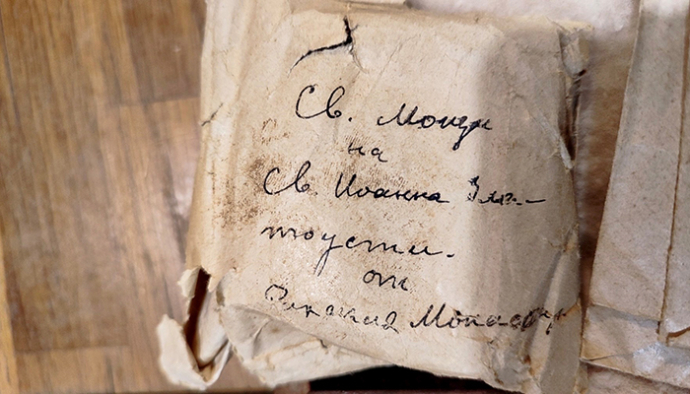 Св. Мощи
на
Св. Иоанна Зла-
тоусти.
от
Монастир